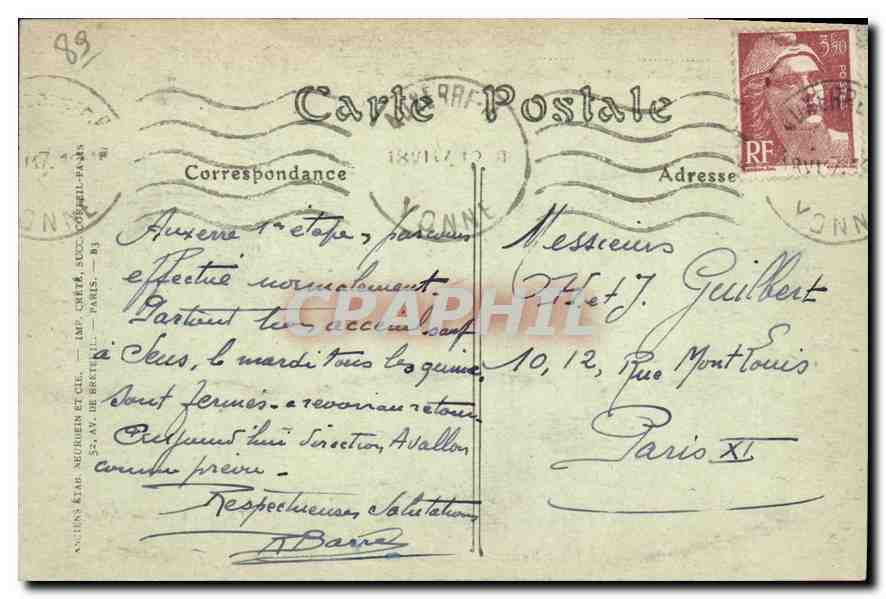 89
Carte Postale
Correspondance
Adresse
3F50
POSTES
RF
AUXERRE
18 VI 47
YONNE
AUXERRE
18 VI 47
YONNE
Auxerre 1re étape, parcours
effectué normalement.
Partout bon accueil sauf
à Sens, le mardi tous les quinc.
sont fermés - a revoir au retour
Aujourd'hui direction Avallon
comme prévu -
Respectueuses Salutations
Barre
Messieurs
et J. Guilbert
10, 12, Rue Mont Louis
Paris XI
CPAPHIL
ANCIENS ÉTAB. NEURDEIN ET CIE. — IMP. CRÉTÉ, SUCC. CORBEIL-PARIS
52, AV. DE BRETEUIL. — PARIS. — B3